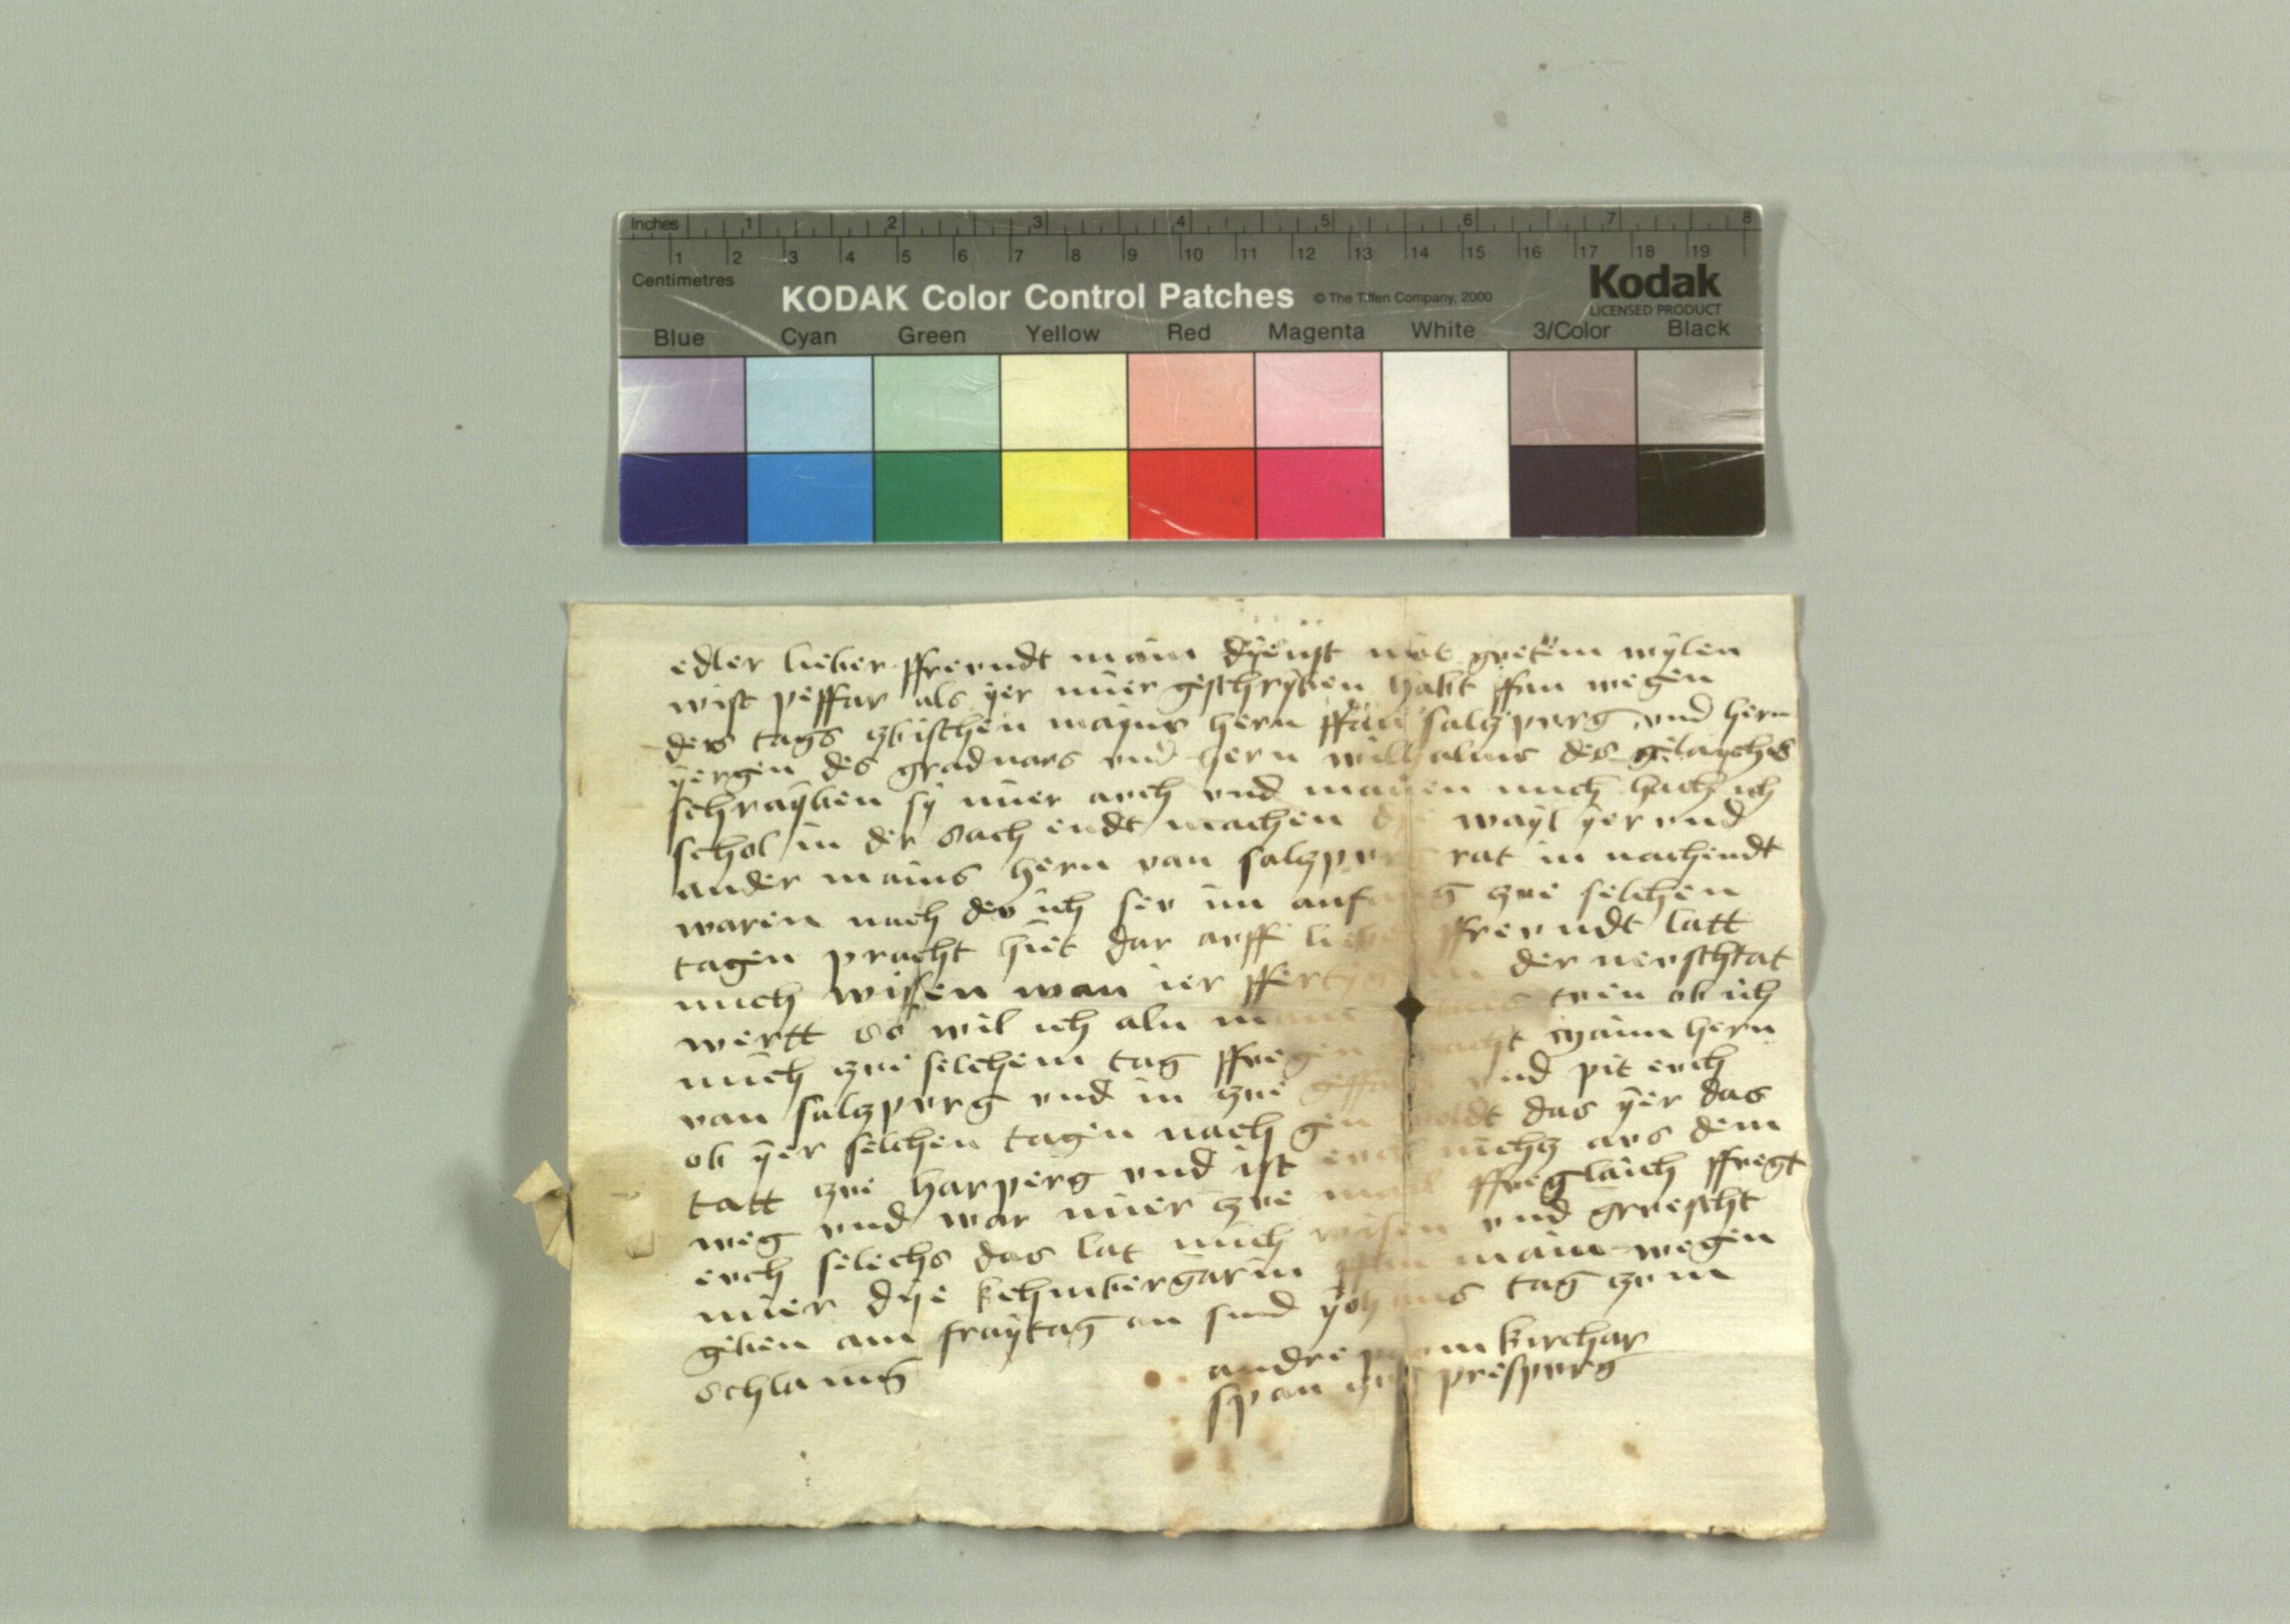 Inches 1 2 3 4 5 6 7 8
1 2 3 4 5 6 7 8 9 10 11 12 13 14 15 16 17 18 19
Centimetres
KODAK Color Control Patches © The Tiffen Company, 2000 Kodak
LICENSED PRODUCT
Blue Cyan Green Yellow Red Magenta White 3/Color Black
edler lieber ffreundt main dyenst mit guetem wylen
wist peffar als yer mier geschryben habt ffan wegen
des tags zbischen mayns hern ffan salzpurg und hern
yergen des graduars und hern willhalms des
schrayben sy mier auch und manen mich ich
schol in der sach endt machen wayl yer und
ander mains hern van salzpurg rat in nachendt
waren nach der ich ser im anfang zue selchen
tagen pracht hiet dar auff lieber ffreundt latt
mich wissen wan ier der neuschtat
wertt so wil ich aln tuen ob ich
mich zue selchem tag ffuegen macht maim hern
van salzpurg und in zue und pit euch
ob yer selchen tagen nach gen woldt das yer das
tatt zue harperg und ist euch nichz aus dem
weg und war mier zue ffueglaich ffuegt
euch selichs das lat mich wisen und gruescht
mier dye ffan main wegen
geben am fraytag an sund yohans tag zum
schlaning
andre paemkirchar
span zue prespurg